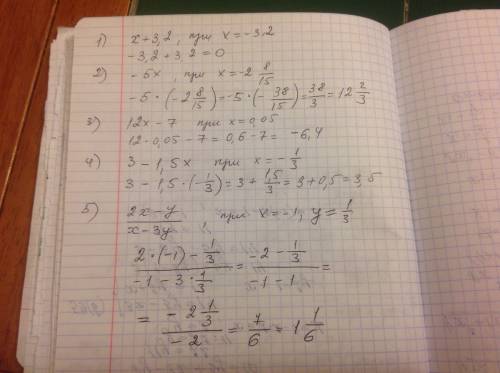 1) x+3,2, при x=-3,2
-3,2+3,2=0
2) -5x, при x=-2 8/15
-5·(-2 8/15)=-5·(-38/15)=38/3=12 2/3
3) 12x-7 при x=0,05
12·0,05-7=0,6-7= -6,4
4) 3-1,5x при x=-1/3
3-1,5·(-1/3)=3+1,5/3=3+0,5=3,5
5) 2x-y/x-3y при x=-1, y=1/3
2·(-1)-1/3/-1-3·1/3=-2-1/3/-1-1=
=-2 1/3/-2=7/6=1 1/6